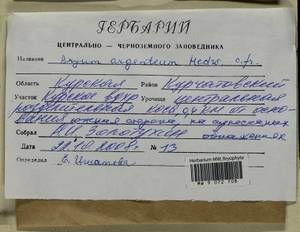 ГЕРБАРИЙ
ЦЕНТРАЛЬНО — ЧЕРНОЗЕМНОГО ЗАПОВЕДНИКА
Название Bryum argenteum Hedw. c.fr.
Область Курская Район Курчатовский
Участок Урочище центральная
южная сторона, на
Собрал Н.И. Золотухин обнажениях
Дата 22.10.2008г. № 13
Определил Е. Игнатова
Herbarium MW, Bryophyta
MW 9 072 708